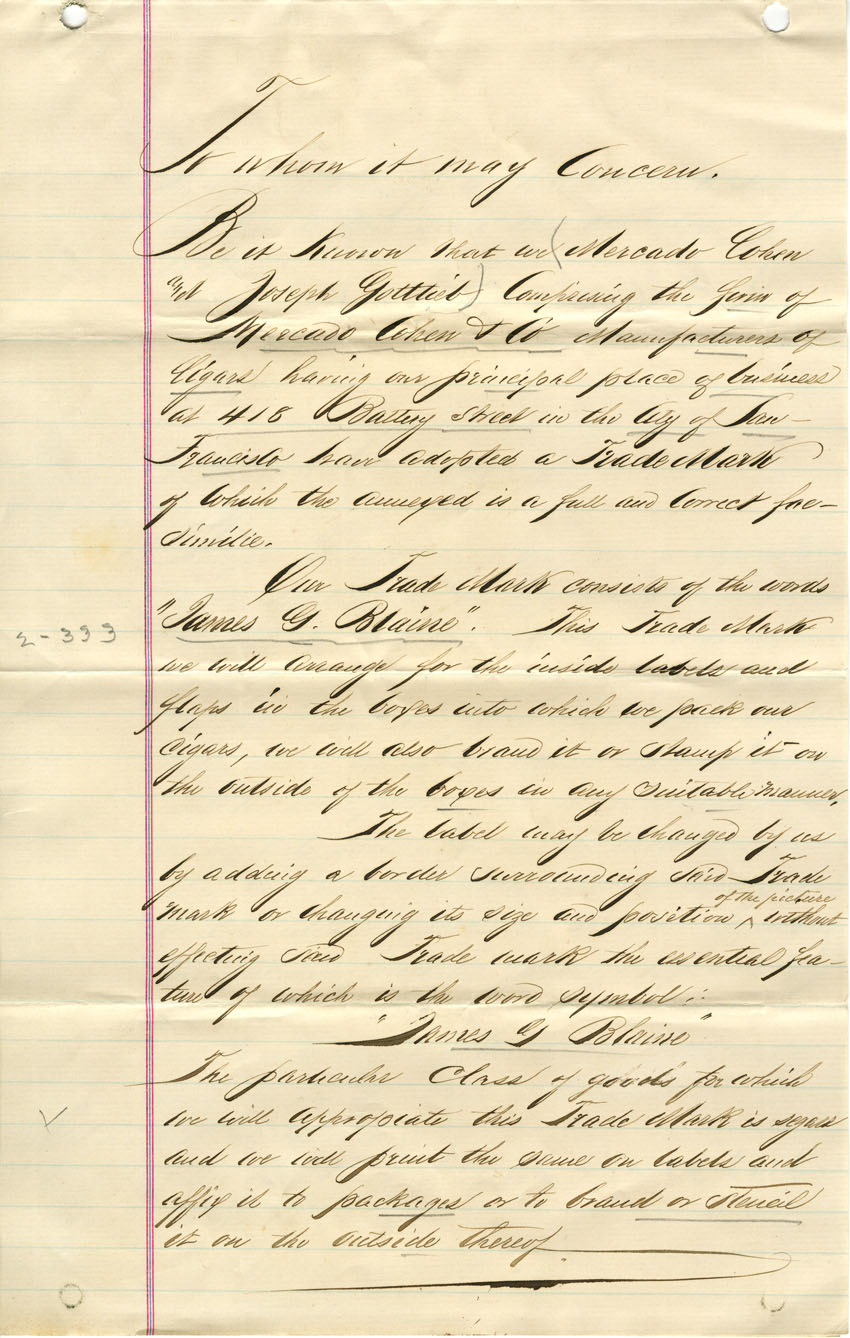 To whom it may Concern.
Be it Known that we (Mercado Cohen
and Joseph Gottlieb) Comprising the firm of
Mercado Cohen & Co Manufacturers of
Cigars having our principal place of business
at 418 Battery Street in the City of San-
Francisco have adopted a Trade Mark
of which the annexed is a full and Correct fac-
simile.
Our Trade Mark consists of the words
"James G. Blaine". This Trade Mark
2-333
we will arrange for the inside labels and
flaps in the boxes into which we pack our
cigars, we will also brand it or stamp it on
the outside of the boxes in any suitable manner.
The label may be changed by us
by adding a border surrounding said Trade
of the picture
mark or changing its size and position ^ without
effecting said Trade mark the essential fea-
ture of which is the word symbol:
"James G Blaine"
The particular Class of goods for which
we will appropiate this Trade Mark is segars
and we will print the same on labels and
affix it to packages or to brand or stencil
it on the outside thereof